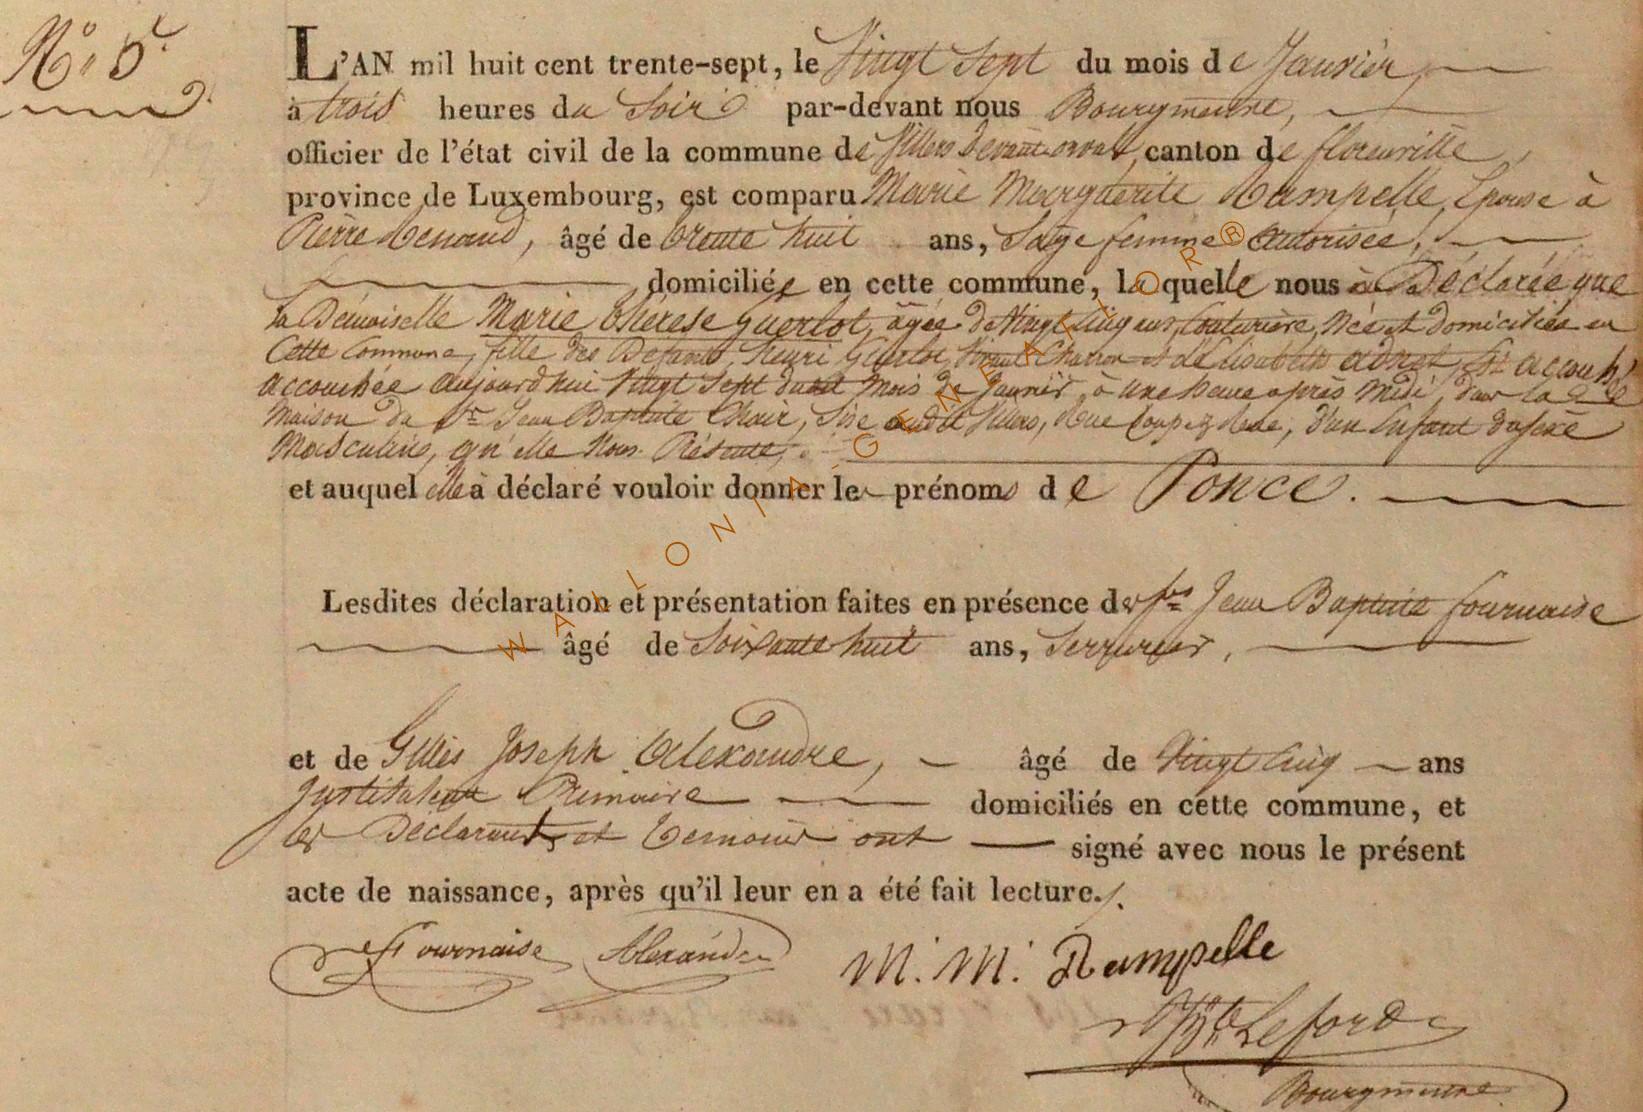 N.º 5.
L'AN mil huit cent trente-sept, le Vingt Sept du mois de Janvier,
à trois heures du Soir par-devant nous Bourgmestre,
officier de l'état civil de la commune de Villers devant orval, canton de florenville,
province de Luxembourg, est comparu Marie Marguerite Rampelle, Epouse à
Pierre Renaud, âgé de trente huit ans, Sage femme autorisée,
domiciliée en cette commune, laquelle nous à Déclarée que
la Démoiselle Marie thérese Guerlot, agée de Vingt Cinq ans, Couturière, Née et domiciliée en
Cette Commune, fille des Défunts Henri Guerlot, Vivant Charron et d'Elisabeth adnet, Est accouché
accouchée aujourd'hui Vingt Sept dudit mois de Janvier, à une heure après Midi, dans la
maison du Sr Jean Baptiste Choir, Sise audit Villers, Rue, d'un Enfant du sexe
Masculine, qu'elle Nous Présente,
et auquel elle à déclaré vouloir donner les prénoms de Ponce.
Lesdites déclaration et présentation faites en présence des srs Jean Baptiste fournaise
âgé de Soixante huit ans, Serrurier,
et de Gilles Joseph Alexandre, âgé de Vingt Cinq ans
Instituteur Primaire domiciliés en cette commune, et
les Déclarants et temoins ont signé avec nous le présent
acte de naissance, après qu'il leur en a été fait lecture.
Fournaise Alexandre M. M. Rampelle
Leford
Bourgmestre
WALLONIA-GENEALOR®